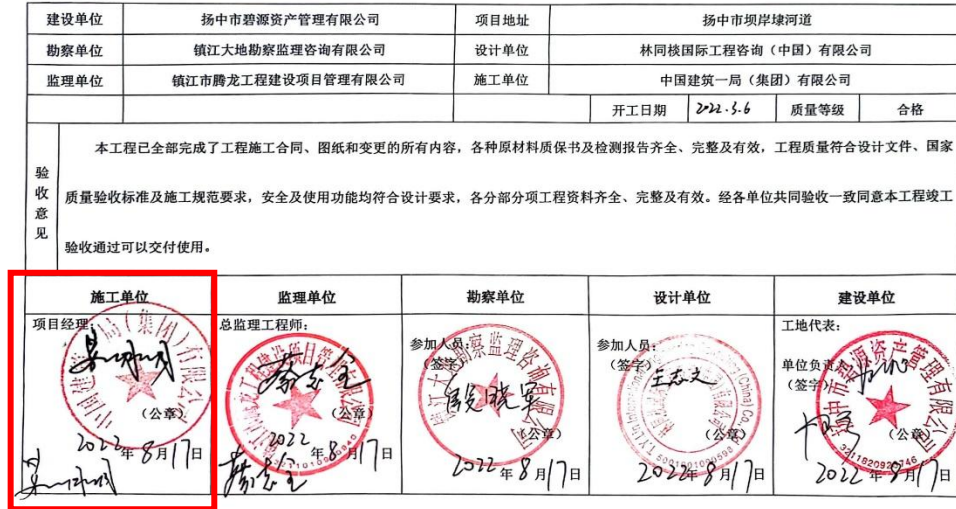 建设单位 扬中市碧源资产管理有限公司 项目地址 扬中市坝岸埭河道
勘察单位 镇江大地勘察监理咨询有限公司 设计单位 林同棪国际工程咨询（中国）有限公司
监理单位 镇江市腾龙工程建设项目管理有限公司 施工单位 中国建筑一局（集团）有限公司
开工日期 2022.3.6 质量等级 合格
验收意见
本工程已全部完成了工程施工合同、图纸和变更的所有内容，各种原材料质保书及检测报告齐全、完整及有效，工程质量符合设计文件、国家
质量验收标准及施工规范要求，安全及使用功能均符合设计要求，各分部分项工程资料齐全、完整及有效。经各单位共同验收一致同意本工程竣工
验收通过可以交付使用。
施工单位 监理单位 勘察单位 设计单位 建设单位
项目经理： 总监理工程师： 参加人员： 参加人员： 工地代表：
（签字） （签字） 单位负责
王志文 （签字）
（公章） （公章） （公章） （公章） （公章）
2022年8月17日 2022年8月17日 2022年8月17日 2022年8月17日 2022年8月17日